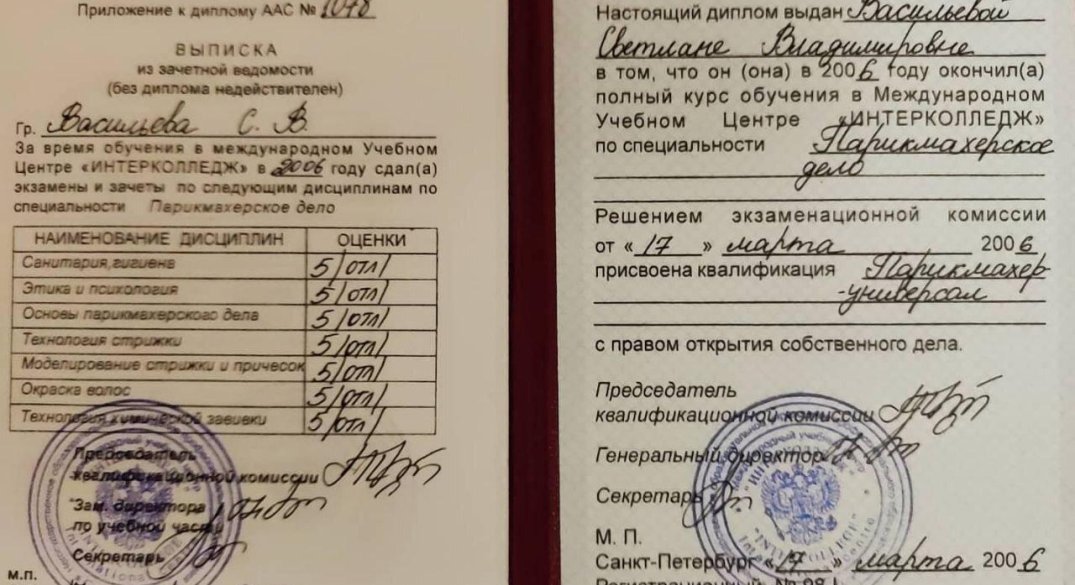 Приложение к диплому ААС № 1048
ВЫПИСКА
из зачетной ведомости
(без диплома недействителен)
Гр. Васильева С. В.
За время обучения в международном Учебном
Центре «ИНТЕРКОЛЛЕДЖ» в 2006 году сдал(а)
экзамены и зачеты по следующим дисциплинам по
специальности Парикмахерское дело
НАИМЕНОВАНИЕ ДИСЦИПЛИН ОЦЕНКИ
Санитария,гигиена 5/отл/
Этика и психология 5/отл/
Основы парикмахерского дела 5/отл/
Технология стрижки 5/отл/
Моделирование стрижки и причесок 5/отл/
Окраска волос 5/отл/
Технология химической завивки 5/отл/
Председатель
квалификационной комиссии
Зам. директора
по учебной части
Секретарь
М.П.
Настоящий диплом выдан Васильевой
Светлане Владимировне
в том, что он (она) в 2006 году окончил(а)
полный курс обучения в Международном
Учебном Центре «ИНТЕРКОЛЛЕДЖ»
по специальности Парикмахерское
дело
Решением экзаменационной комиссии
от «17» марта 2006
присвоена квалификация Парикмахер-
-универсал
с правом открытия собственного дела.
Председатель
квалификационной комиссии
Генеральный директор
Секретарь
М. П.
Санкт-Петербург «17» марта 2006